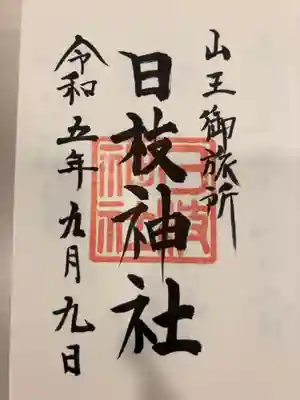 山王御旅所
日枝神社
令和五年九月九日
日枝神社